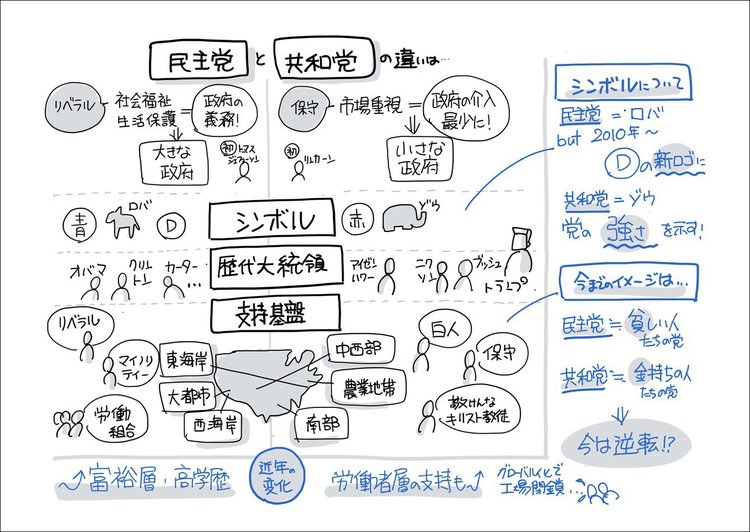 民主党 と 共和党 の違いは…
リベラル
社会福祉
生活保護
=
政府の
義務!
大きな
政府
初 トマス
ジェファーソン
保守
市場重視
=
政府の介入
最少に!
小さな
政府
初
リンカーン
シンボル
青
ロバ
D
赤
ゾウ
歴代大統領
オバマ
クリン
トン
カーター
…
アイゼン
ハワー
ニク
ソン
ブッシュ
トランプ
支持基盤
リベラル
マイノリ
ティー
労働
組合
東海岸
大都市
西海岸
中西部
農業地帯
南部
白人
保守
敬けんな
キリスト教徒
近年の
変化
富裕層・高学歴
労働者層の支持も
グローバル化で
工場閉鎖…
シンボルについて
民主党 = ロバ
but 2010年~
Dの新ロゴに
共和党 = ゾウ
党の 強さ を示す!
今までのイメージは…
民主党 = 貧しい人
たちの党
共和党 = 金持ちの人
たちの党
今は逆転!?